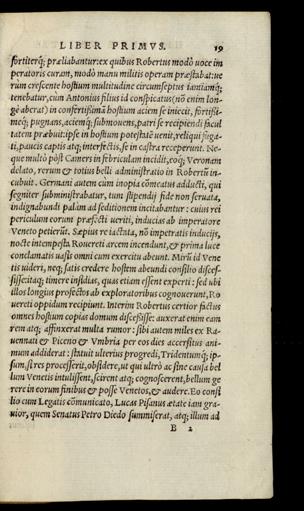 LIBER PRIMVS. 19
fortiterq́; præliabantur: ex quibus Robertus modò uoce im
peratoris curam, modò manu militis operam præstabat: ue
rum crescente hostium multitudine circumseptus iam iamq́;
tenebatur, cùm Antonius filius id conspicatus (nõ enim lon-
gè aberat) in confertißimã hostium aciem se iniecit, fortißi-
meq́; pugnans, aciemq́; submouens, patri se recipiendi facul
tatem præbuit: ipse in hostium potestatẽ uenit, reliqui fuga-
ti, paucis captis atq; interfectis, se in castra receperunt. Ne-
que multo pòst Caners in febriculam incidit, eoq́; Veronam
delato, rerum & totius belli administratio in Robertũ in-
cubuit. Germani autem cum inopia cõmeatus adducti, qui
segniter subministrabatur, tum stipendij fide non seruata,
indignabundi palàm ad seditionem incitabantur: cuius rei
periculum eorum præfecti ueriti, inducias ab imperatore
Veneto petierũt. Sæpius re iactata, nõ impetratis inducijs,
nocte intempesta Rouereti arcem incendunt, & prima luce
conclamatis uasis omni cum exercitu abeunt. Mirũ id Vene
tis uideri, neq; satis credere hostem abeundi consilio disces-
sisse: itaq; timere insidias, quas etiam essent experti: sed ubi
illos longius profectos ab exploratoribus cognouerunt, Ro
uereti oppidum recipiunt. Interim Robertus certior factus
omnes hostium copias domum discessisse: auxerat enim eam
rem atq; affinxerat multa rumor: sibi autem miles ex Ra-
uennati & Piceno & Vmbria per eos dies accersitus ani-
mum addiderat: statuit ulterius progredi, Tridentumq́; ip-
sum, si res processerit, obsidere, ut qui ultrò ac sine causa bel
lum Venetis intulissent, scirent atq; cognoscerent, bellum ge
rere in eorum finibus & posse Venetos, & audere. Eo consi
lio cum Legatis cõmunicato, Lucas Pisanus ætate iam gra-
uior, quem Senatus Petro Diedo summiserat, atq; illum ad
B 2